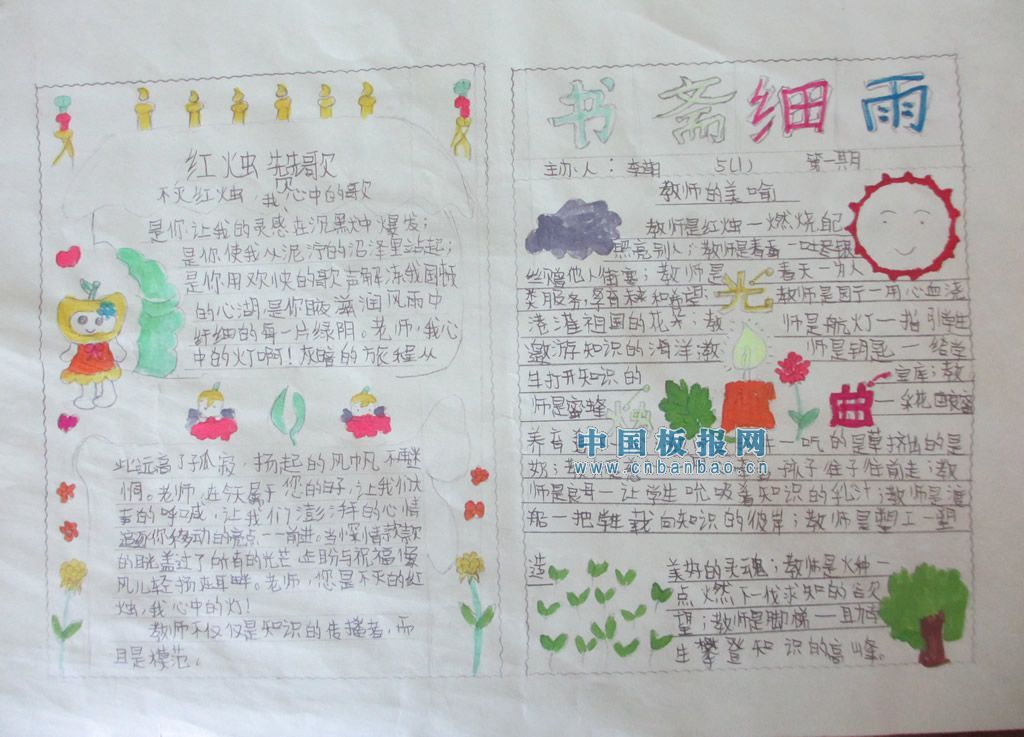 红烛赞歌
不灭红烛,我心中的歌
是你,让我的灵感在沉默中爆发;
是你使我从泥泞的沼泽里站起;
是你用欢快的歌声解冻我固恹
的心湖,是你
滋润风雨中
纤细的每一片绿阴。老师,我心
中的灯啊!灰暗的旅程从
此远离了孤寂,扬起的风帆不再迷
惘。老师,在今天属于您的日子,让我们大
声的呼喊,让我们澎湃的心情
追逐你移动的亮点——前进。当深情款款
的目光盖过了所有的光芒
与祝福像
风儿轻扬在耳畔。老师,您是不灭的红
烛,我心中的灯!
教师不仅仅是知识的传播者,而
且是模范。
书斋细雨
主办人:李翔 5(1) 第一期
教师的美喻
教师是红烛—燃烧自己
照亮别人;教师是春蚕—吐尽银
丝赠他人
教师是春天—为人
类服务,孕育
和希望;光 教师是园丁—用心血浇
浇灌祖国的花朵;教 师是航灯—指引学生
遨游知识的海洋教 师是钥匙—给学
生打开知识的 宝库;教
师是蜜蜂 曲
养育 吃的是草挤出的是
奶;教 孩子往前走;教
师是良母—让学生吮吸着知识的乳汁;教师是渡
船—把学生载向知识的彼岸;教师是塑工—塑
造 美好的灵魂;教师是火种—
点燃下代求知的欲
望;教师是脚梯—
生攀登知识的高峰。
中国板报网
www.cnbanbao.cn